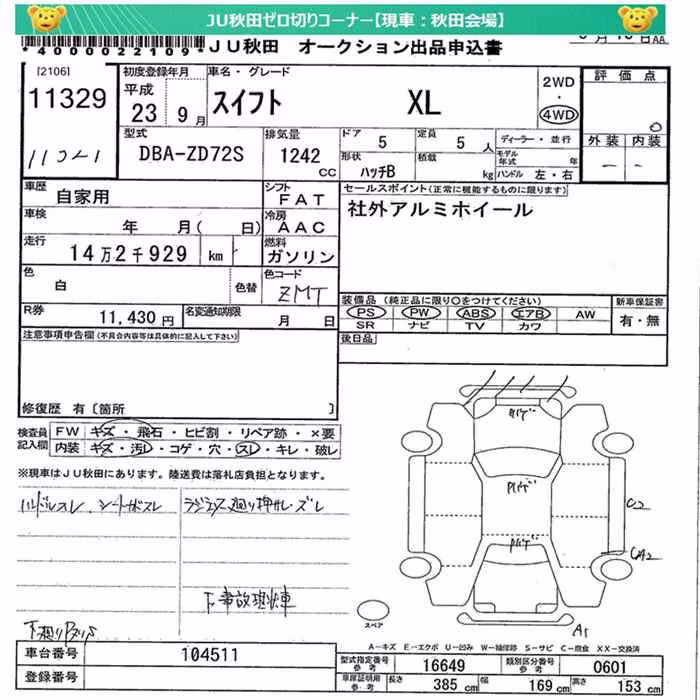 JU秋田ゼロ切りコーナー【現車：秋田会場】
*4000022109* JU秋田 オークション出品申込書
[2106] 初度登録年月 車名・グレード 2WD ・ 4WD 評価点
11329 平成 23 9月 スイフト XL 0
型式 排気量 ドア 定員 ディーラー・並行 外装 内装
11021 DBA-ZD72S 1242 CC 5 5人 モデル年式 年 － －
形状 ハッチB 積載 kg ハンドル 左・右
車歴 自家用 シフト FAT セールスポイント(正常に機能するものに限ります)
車検 年 月( 日) 冷房 AAC 社外アルミホイール
走行 14万2千929 km 燃料 ガソリン
色 白 色替 色コード ZMT
装備品 (純正品に限り○をつけてください) 新車保証書
R券 11,430円 名変通知期限 月 日 PS PW ABS エアB AW 有・無
SR ナビ TV カワ
注意事項申告欄(不具合内容等は具体的に記入して下さい) 後日品
修復歴 有〔箇所 〕
検査員記入欄 FW キズ・飛石・ヒビ割・リペア跡・×要
内装 キズ・汚レ・コゲ・穴・スレ・キレ・破レ
※現車はJU秋田にあります。陸送費は落札店負担となります。
ハンドルスレ、シートサビスレ
下廻りサビ
事故現状車
C2
A1
スペア
A-キズ E-エクボ U-凹み W-補修跡 S-サビ C-腐食 XX-交換済
車台番号 104511 型式指定番号 参考 16649 類別区分番号 参考 0601
登録番号 車庫証明用 参考 長さ 385 cm 幅 169 cm 高さ 153 cm